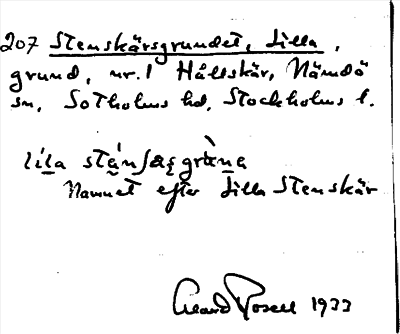 207 Stenskärsgrundet, Lilla,
grund, nr. 1 Hållskär, Nämdö
sn, Sotholms hd, Stockholms l.
lila stánʃæṣgrùna
Namnet efter Lilla Stenskär
Rosell 1933